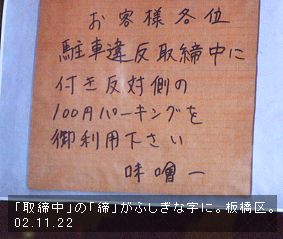 お客様各位
駐車違反取締中に
付き反対側の
100円パーキングを
御利用下さい
味噌一
「取締中」の「締」がふしぎな字に。板橋区。
02.11.22